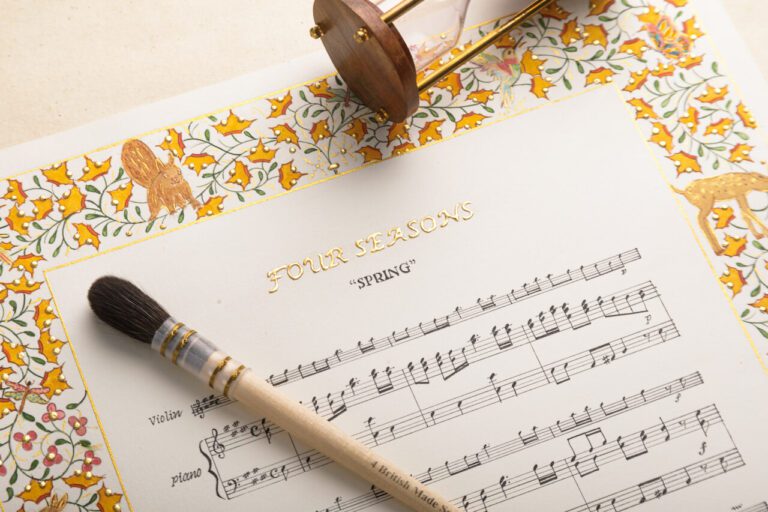 FOUR SEASONS
"SPRING"
Violin
piano
4 British Made